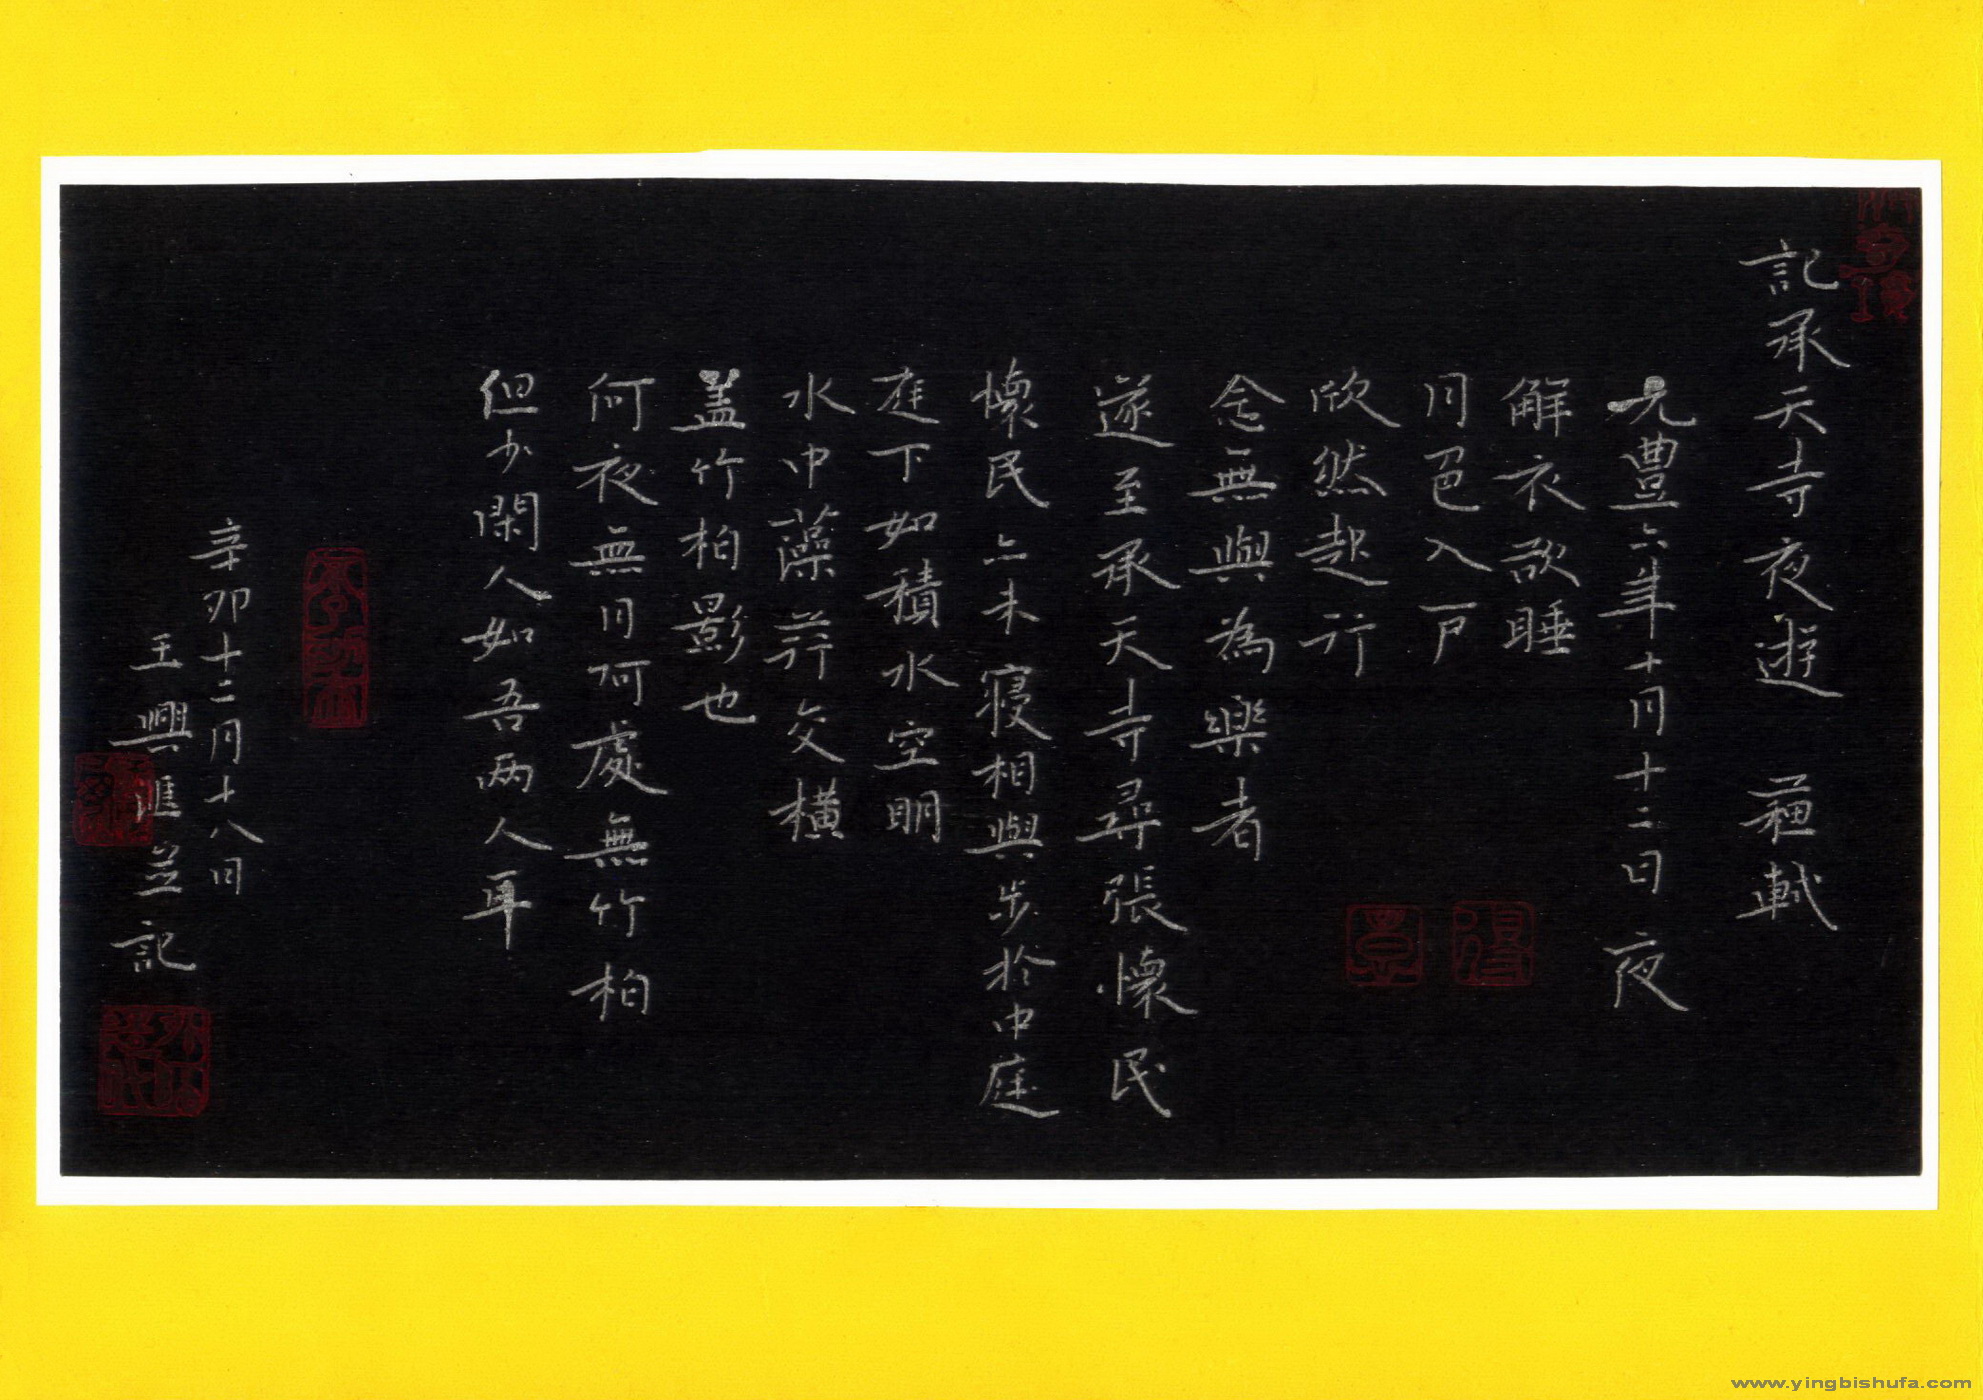 記承天寺夜遊 蘇軾
元豐六年十月十二日夜
解衣欲睡
月色入戶
欣然起行
念無與為樂者
遂至承天寺尋張懷民
懷民亦未寢相與步於中庭
庭下如積水空明
水中藻荇交橫
盖竹柏影也
何夜無月何處無竹柏
但少閑人如吾两人耳
辛卯十二月十八日
王興滙並記
www.yingbishufa.com